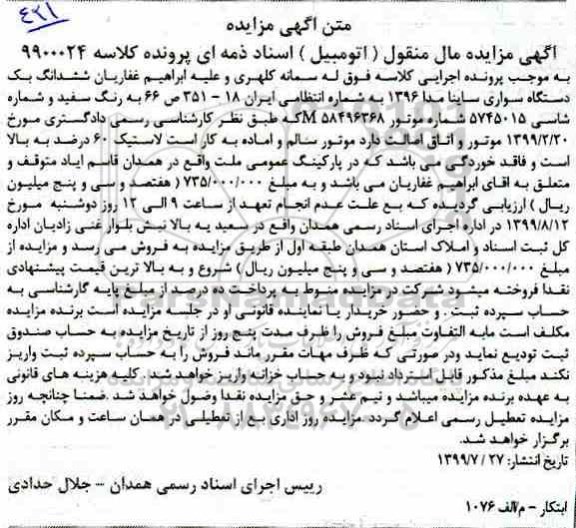 ۴۲۱
متن آگهی مزایده
آگهی مزایده مال منقول ( اتومبیل ) اسناد ذمه ای پرونده کلاسه ۹۹۰۰۰۲۴
به موجب پرونده اجرایی کلاسه فوق له سمانه کلهری و علیه ابراهیم غفاریان ششدانگ یک
دستگاه سواری ساینا مدا ۱۳۹۶ به شماره انتظامی ایران ۱۸ – ۳۵۱ ص ۶۶ به رنگ سفید و شماره
شاسی ۵۷۴۵۰۱۵ شماره موتور M۵۸۴۹۶۳۶۸ که طبق نظر کارشناسی رسمی دادگستری مورخ
۱۳۹۹/۲/۲۰ موتور و اتاق اصالت دارد موتور سالم و اماده به کار است لاستیک ۶۰ درصد به بالا
است و فاقد خوردگی می باشد که در پارکینگ عمومی ملت واقع در همدان قاسم ایاد متوقف و
متعلق به اقای ابراهیم غفاریان می باشد و به مبلغ ۷۳۵/۰۰۰/۰۰۰ ( هفتصد و سی و پنج میلیون
ریال ) ارزیابی گردیده که بع علت عدم انجام تعهد از ساعت ۹ الی ۱۲ روز دوشنبه مورخ
۱۳۹۹/۸/۱۲ در اداره اجرای اسناد رسمی همدان واقع در سعید یه بالا نبش بلوار غنی زادیان اداره
کل ثبت اسناد و املاک استان همدان طبقه اول از طریق مزایده به فروش می رسد و مزایده از
مبلغ ۷۳۵/۰۰۰/۰۰۰ ( هفتصد و سی و پنج میلیون ریال ) شروع و به بالا ترین قیمت پیشنهادی
نقدا فروخته میشود شرکت در مزایده منوط به پرداخت ده درصد از مبلغ پایه گارشناسی به
حساب سپرده ثبت . و حضور خریدار یا نماینده قانونی او در جلسه مزایده است برنده مزایده
مکلف است مابه التفاوت مبلغ فروش را ظرف مدت پنج روز از تاریخ مزایده به حساب صندوق
ثبت تودیع نماید ودر صورتی که ظرف مهات مقرر ماند فروش را به حساب سپرده ثبت واریز
نکند مبلغ مذکور قابل استرداد نبود و به حساب خزانه واریز خواهد شد . کلیه هزینه های قانونی
به عهده برنده مزایده میباشد و نیم عشر و حق مزایده نقدا وصول خواهد شد .ضمنا چنانچه روز
مزایده تعطیل رسمی اعلام گردد .مزایده روز اداری بع از تعطیلی در همان ساعت و مکان مقرر
برگزار خواهد شد.
تاریخ انتشار: ۲۷ /۱۳۹۹/۷
رییس اجرای اسناد رسمی همدان – جلال حدادی
ابتکار – م/الف ۱۰۷۶
ParsNamadData